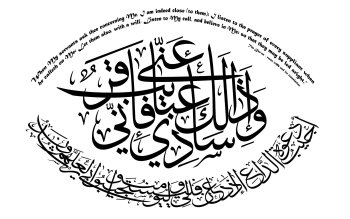 When My servants ask thee concerning Me, I am indeed close (to them): I listen to the prayer of every suppliant when
he calleth on Me: Let them also, with a will, Listen to My call, and believe in Me: that they may walk in
وإذا سألك عبادي عني فإني قريب
أجيب دعوة الداع إذا دعان فليستجيبوا لي وليؤمنوا بي لعلهم يرشدون